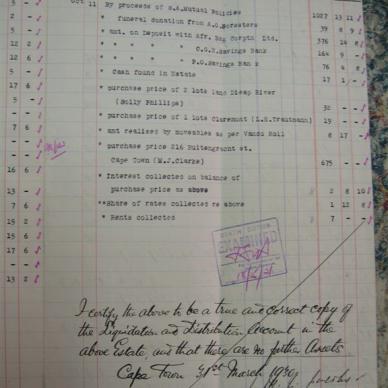 Oct 11 By proceeds of S.A.Mutual Policies 1027 13 11
" funeral donation from A.O.Foresters 39 8 9
" amt. on Deposit with Afr. Bkg Corptn Ltd. 376 14 8
" " " " C.G.H.Savings Bank 164 9 -
" " " " P.O.Savings Bank 76 4 8
" Cash found in Estate 17 1 -
" purchase price of 2 lots land Diep River
(Solly Phillips) 32 - -
" purchase price of 1 lots Claremont (L.H.Trautmann) 19 - -
" amt realised by moveables as per Vendu Roll 8 17 -
" purchase price 216 Buitengracht st.
Cape Town (M.J.Clarke) 675 - -
" Interest collected on balance of
purchase price as above 2 8 10
"" Share of rates collected re above 1 12 8
" Rents collected 7 - -
EXAMINED
I certify the above to be a true and correct copy of
the Liquidation and Distribution Account in the
above Estate, and that there are no further Assets
Cape Town 31st March 1930